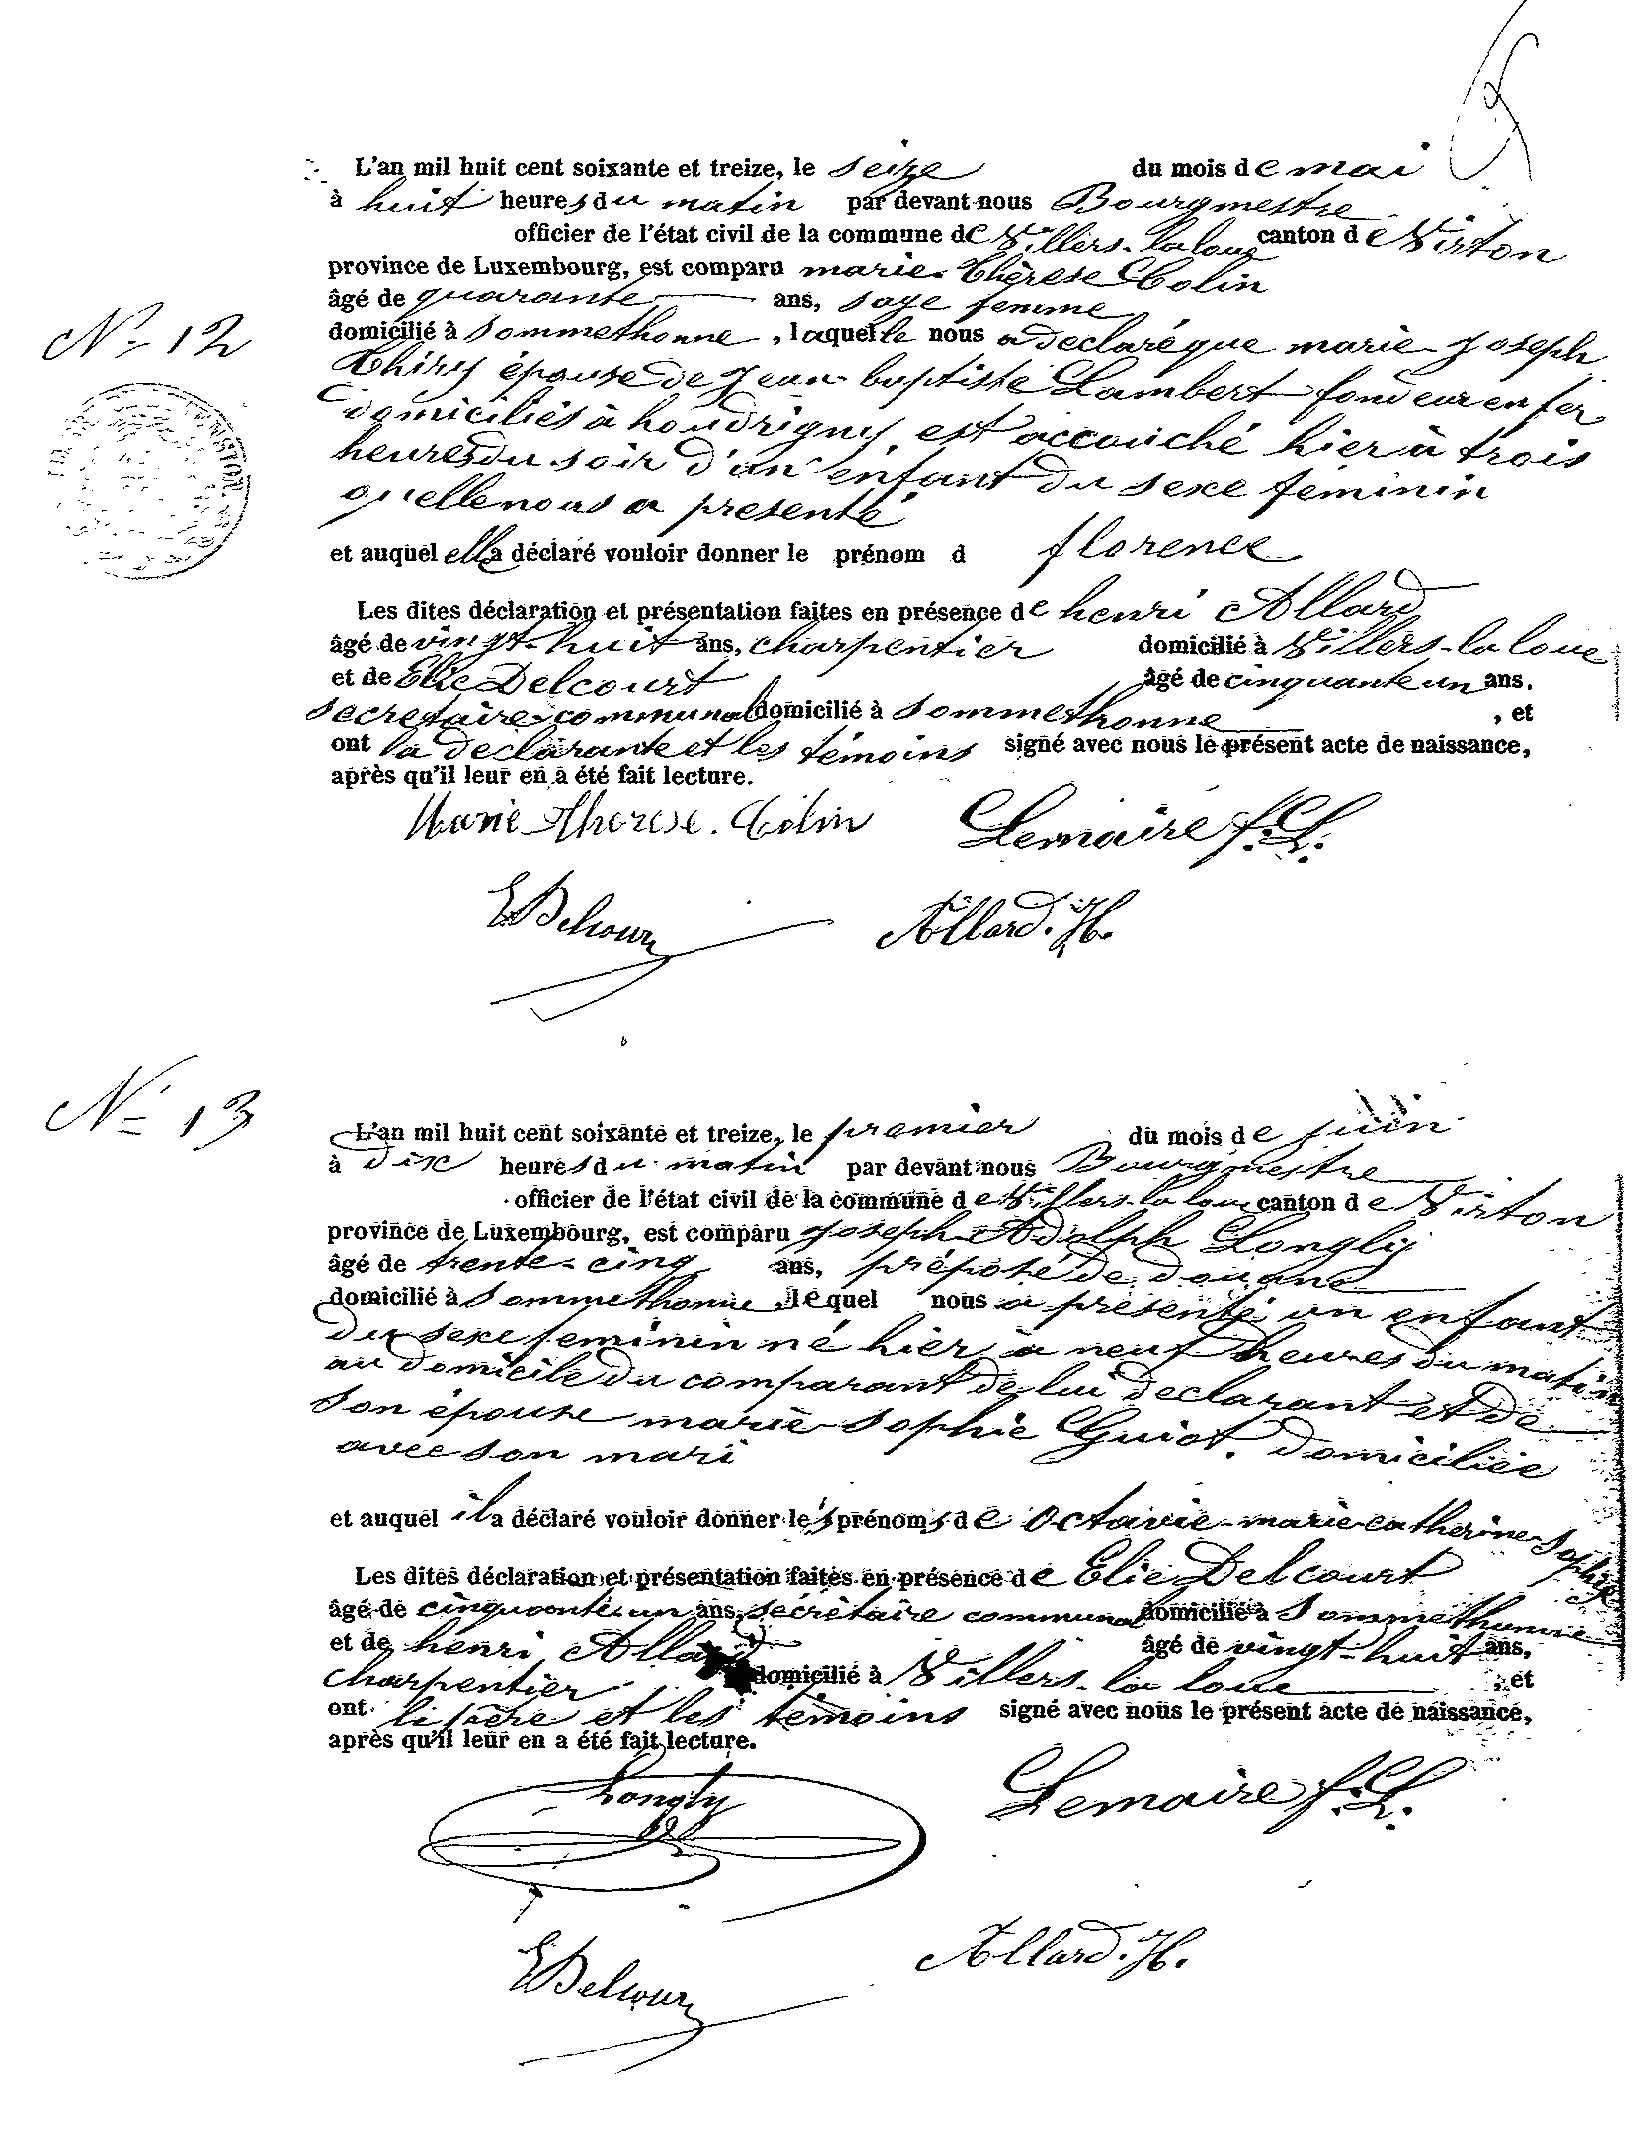 L'an mil huit cent soixante et treize, le seize du mois de mai
à huit heures du matin par devant nous Bourgmestre
officier de l'état civil de la commune de Villers-la loue canton de Virton
province de Luxembourg, est comparu marie-Thérèse Colin
âgé de quarante ans, sage femme
N° 12
domicilié à Sommethonne, laquelle nous a declaré que marie-Joseph
Thiry épouse de Jean baptiste Lambert fondeur en fer
domiciliés à houdrigny est accouché hier à trois
heures du soir d'un enfant du sexe féminin
qu'elle nous a presenté
et auquel elle a déclaré vouloir donner le prénom d florence
Les dites déclaration et présentation faites en présence de henri Allard
âgé de vingt-huit ans, charpentier domicilié à Villers-la loue
et de Elie Delcourt âgé de cinquante un ans.
secretaire communal domicilié à Sommethonne, et
ont la declarante et les témoins signé avec nous le présent acte de naissance,
après qu'il leur en a été fait lecture.
Marie Therese. Colin Lemaire f.L.
E Delcour Allard. H.
N° 13
L'an mil huit cent soixante et treize, le premier du mois de juin
à dix heures du matin par devant nous Bourgmestre
officier de l'état civil de la commune de Villers-la loue canton de Virton
province de Luxembourg, est comparu Joseph-Adolph Longly
âgé de trente-cinq ans, préposé de douane
domicilié à Sommethonne, lequel nous a présenté un enfant
du sexe feminin né hier à neuf heures du matin
au domicile du comparant de lui declarant et de
son épouse marie-sophie Guiot. domiciliée
avec son mari
et auquel il a déclaré vouloir donner les prénoms de octavie-marie-catherine-Sophie
Les dites déclaration et présentation faites en présence de Elie Delcourt
âgé de cinquante-un ans, secrétaire communal domicilié à Sommethonne
et de henri Allard âgé de vingt-huit ans,
charpentier domicilié à Villers-la loue, et
ont le père et les témoins signé avec nous le présent acte de naissance,
après qu'il leur en a été fait lecture.
Longly Lemaire f.L.
E Delcour Allard. H.